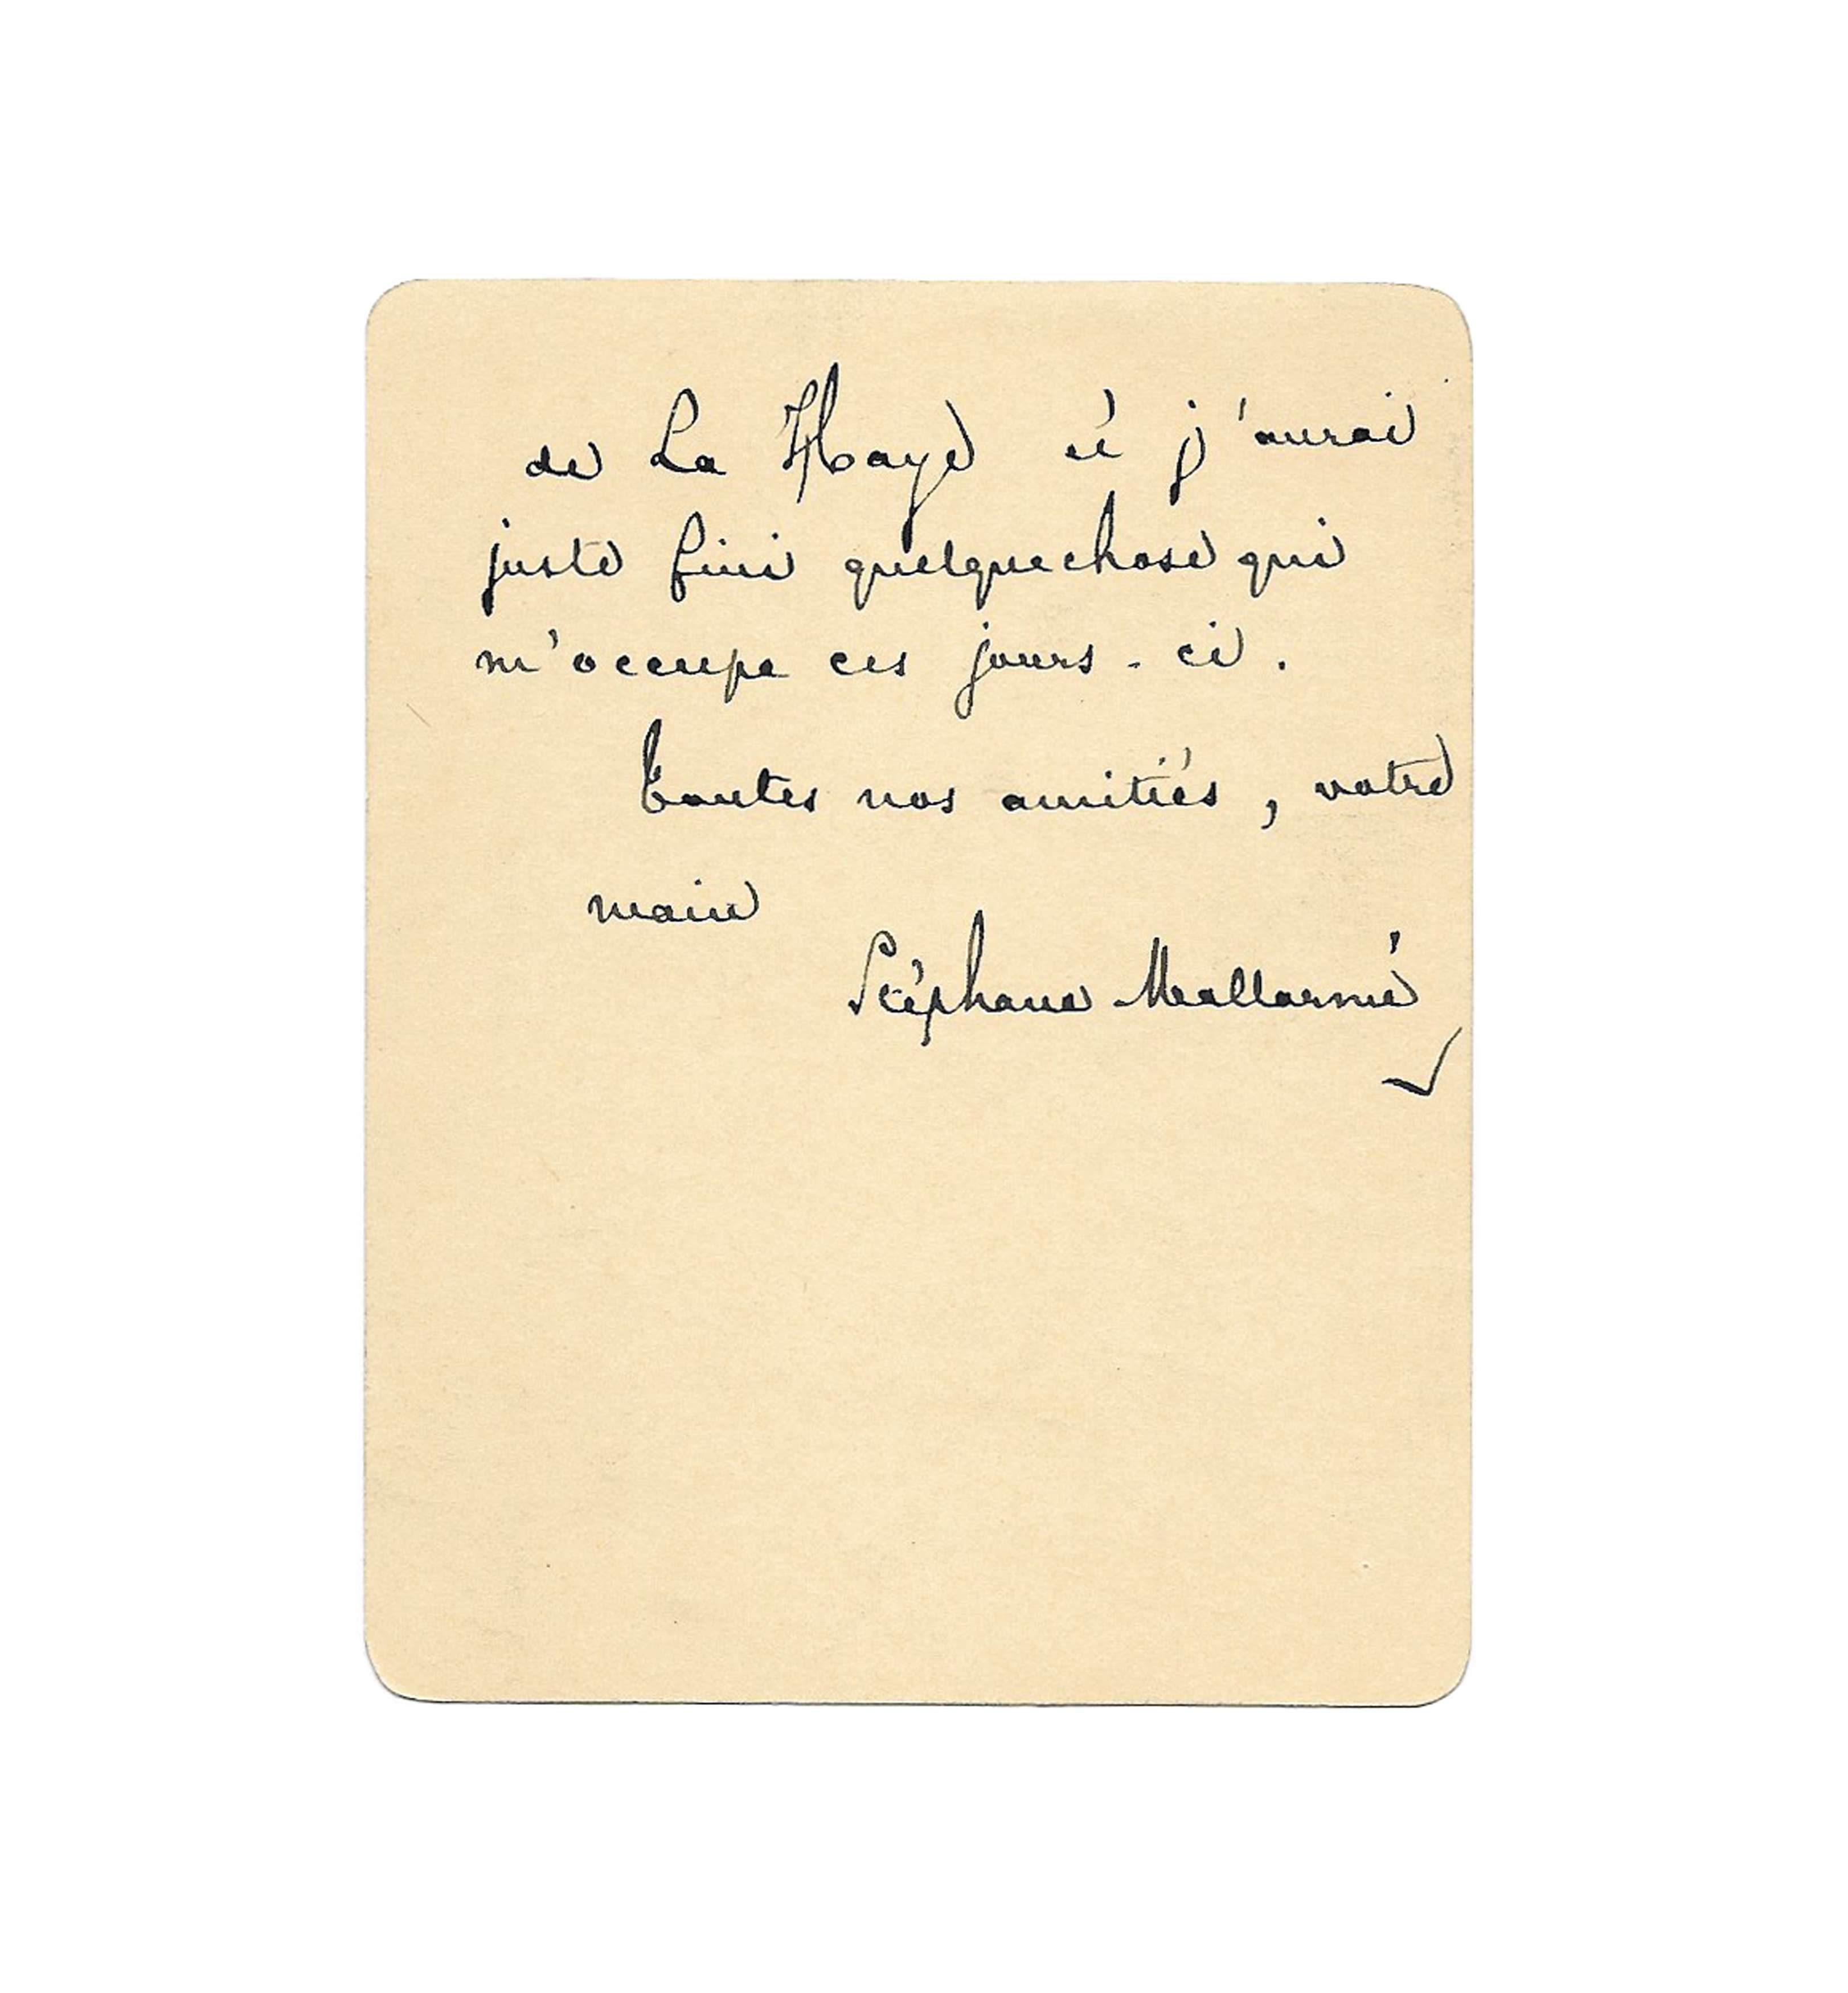 de La Haye et j'aurai
juste fini quelquechose qui
m'occupe ces jours-ci.
Toutes nos amitiés, votre
main
Stéphane Mallarmé